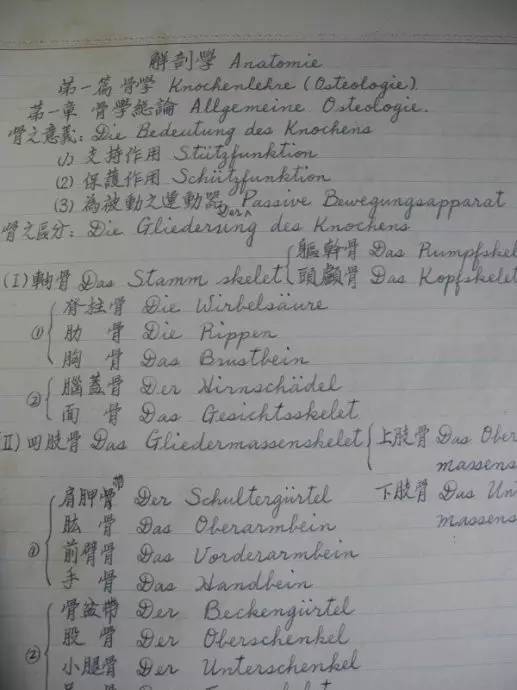 解剖學 Anatomie
第一篇 骨學 Knochenlehre (Osteologie).
第一章 骨學總論 Allgemeine Osteologie.
骨之意義: Die Bedeutung des Knochens
(1) 支持作用 Stützfunktion
(2) 保護作用 Schützfunktion
(3) 為被動之運動器 Der Passive Bewegungsapparat
骨之區分: Die Gliederung des Knochens
軀幹骨 Das Rumpfskel
(I) 軸骨 Das Stamm skelet 頭顱骨 Das Kopfskelet
脊柱骨 Die Wirbelsäure
① 肋骨 Die Rippen
胸骨 Das Brustbein
② 腦蓋骨 Der Hirnschädel
面骨 Das Gesichtsskelet
(II) 四肢骨 Das Gliedermassenskelet 上肢骨 Das Ober
massens
肩胛骨 Der Schultergürtel 下肢骨 Das Un
肱骨 Das Oberarmbein massens
① 前臂骨 Das Vorderarmbein
手骨 Das Handbein
骨盆帶 Der Beckengürtel
股骨 Der Oberschenkel
② 小腿骨 Der Unterschenkel